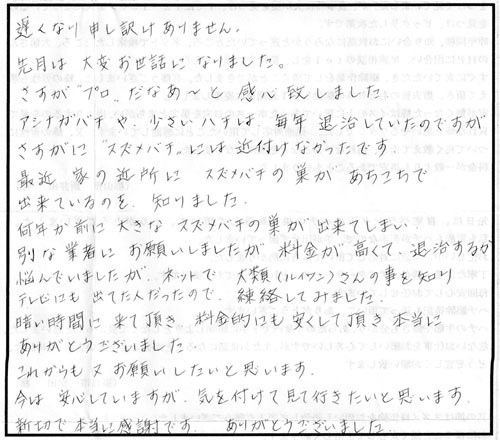 遅くなり申し訳けありません.
先月は 大変お世話に なりました。
さすが〝プロ〟だなあ〜と 感心致しました
アシナガバチや、少さいハチは、毎年 退治していたのですが
さすがに〝スズメバチ〟には近付けなかったです.
最近 家の近所に スズメバチの巣が あちこちで
出来ているのを、知りました.
何年か前に 大きな スズメバチの巣が 出来てしまい.
別な業者に お願いしましたが 料金が 高くて、退治するか
悩んでいましたが、ネットで 大類(ルイワン)さんの事を知り
テレビにも 出てた人だったので、練絡してみました.
暗い時間に 来て頂き、料金的にも 安くして頂き 本当に
ありがとうございました
これからも 又 お願いしたいと 思います.
今は 安心していますが、気を付けて 見て行きたいと 思います.
新切で 本当に感謝です. ありがとうございました.